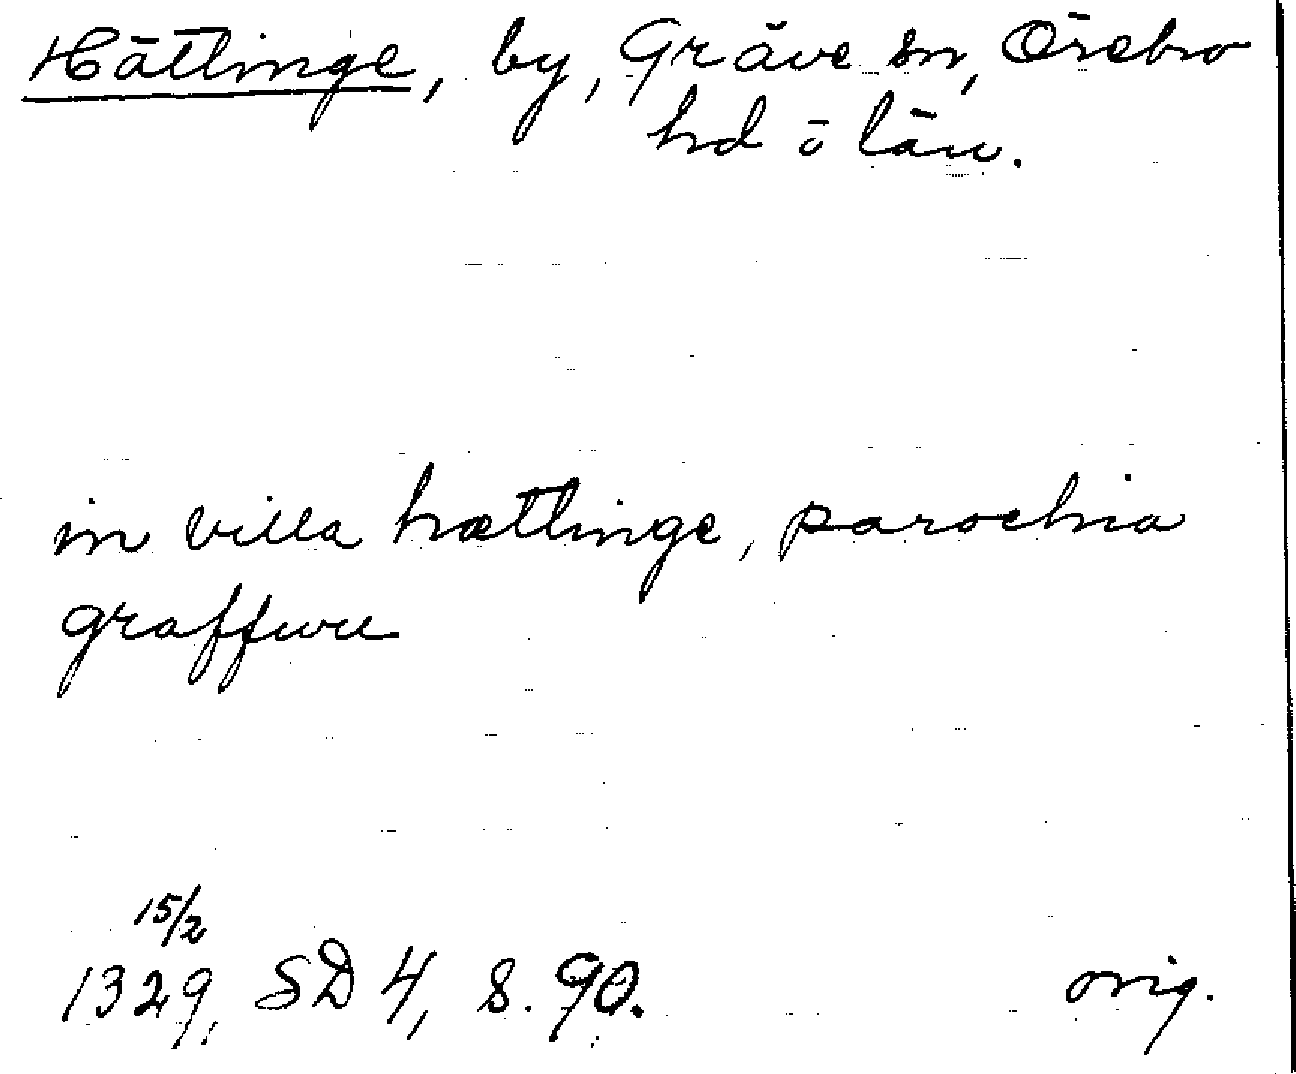 Hättinge, by, Gräve sn, Örebro
hd o län.
in villa hætlinge, parochia
graffwu
15/2
1329, SD 4, s. 90. orig.